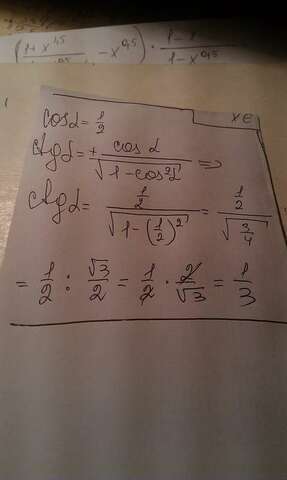 (1+x^1,5 / ... - x^0,5) · 1-x... / 1-x^0,5
cos α = 1/2
ctg α = ± cos α / √(1-cos²α) ⇒
ctg α = (1/2) / √(1-(1/2)²) = (1/2) / √(3/4)
= 1/2 : √3/2 = 1/2 · 2/√3 = 1/3